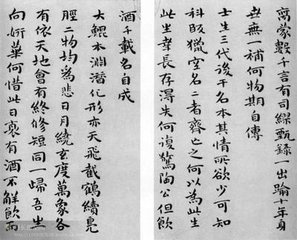 蒙數千言有司繆甄錄一出踰十年身
世無一補何物期自傳
士生三代後干名本其情所欲少可知
名二者齊亡之何以為此生
此生幸長存淂失何復驚陶公但飲
酒千載名自成
大鯤本淵潛化形亦天飛截鶴續鳧
脛二物均為悲日月繞玄度萬象各
有依天地會有終修短同一歸吾生
向妍華何惜此日衰有酒不解飲而